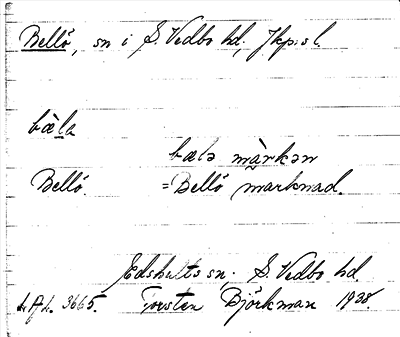 Bellö, sn i S. Vedbo hd, Jkp:s l.
bæ̀la
bælə màrkən
Bellö. = Bellö marknad.
Edshults sn. S. Vedbo hd.
3665. Torsten Björkman 1928.